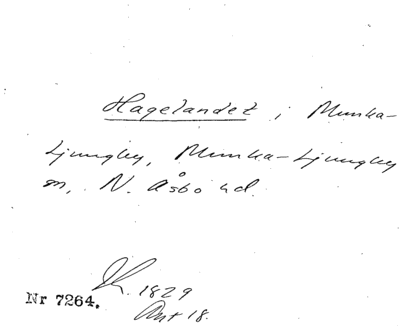 Hagelandet i Munka-
Ljungby, Munka-Ljungby
sn, N. Åsbo hd.
1829
Nr 7264.
Akt 18.